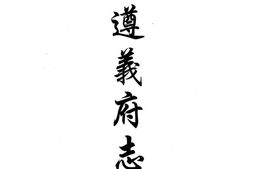 遵義府志